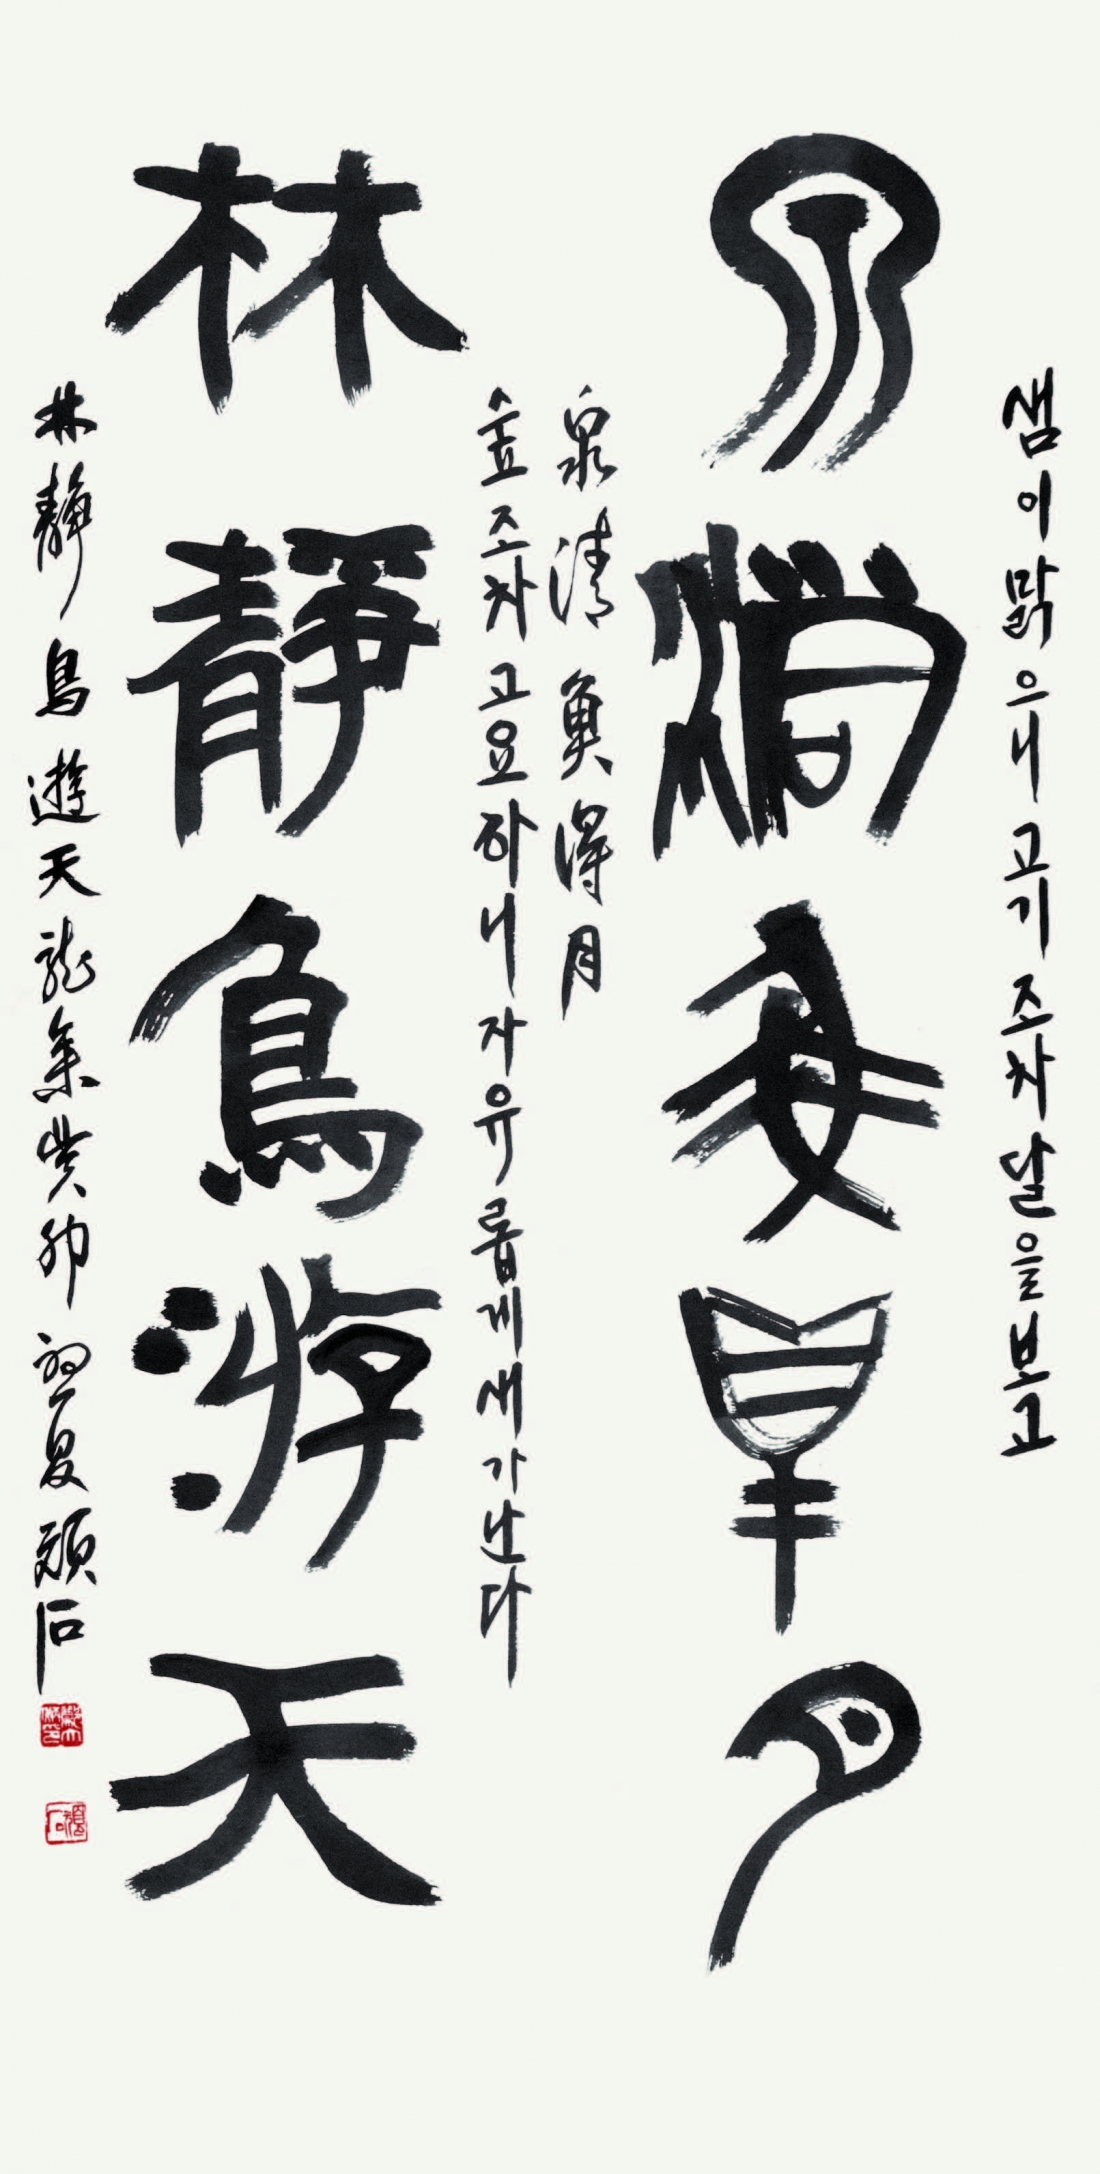 샘이 맑으니 고기조차 달을 보고
泉清魚得月
泉清魚得月
숲조차 고요하니 자유롭게 새가 난다
林靜鳥游天
林靜鳥遊天 龍集癸卯 初夏 頑石
頑石